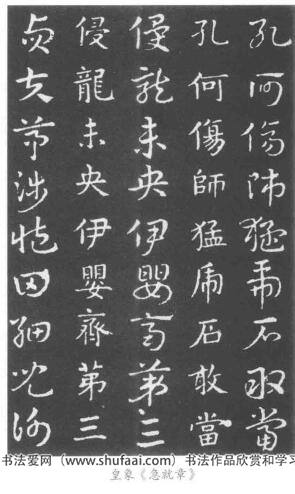 孔何傷師猛虎石敢當
孔何傷師猛虎石敢當
侵龍未央伊嬰齊第三
侵龍未央伊嬰齊第三
貞夫茅涉臧田細兒謝
书法爱网(www.shufaai.com)书法作品欣赏和学习
皇象《急就章》